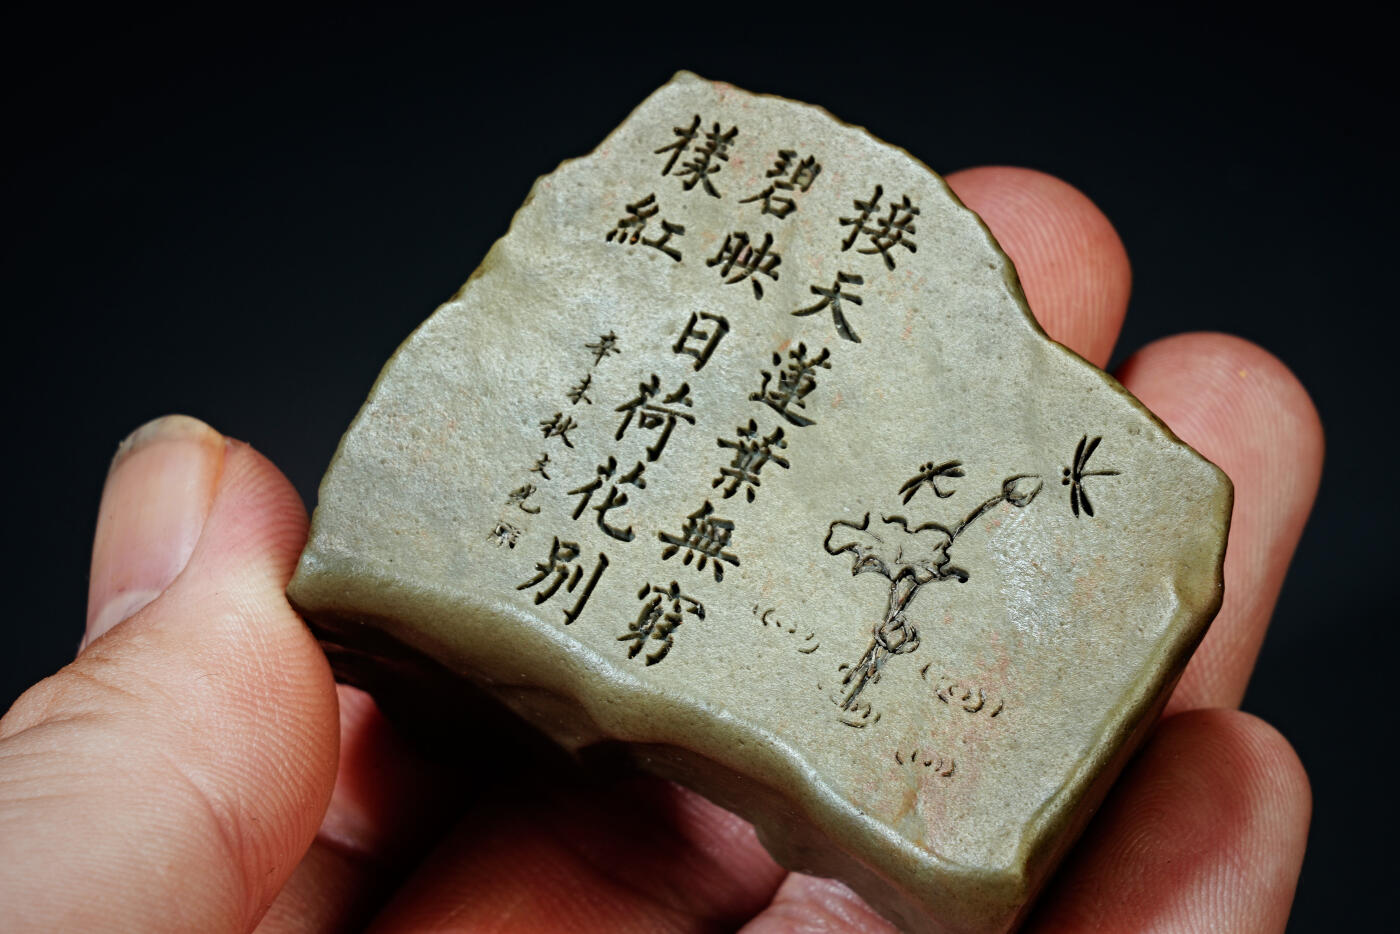 接天蓮葉無窮
碧映日荷花別
樣紅
辛未秋文